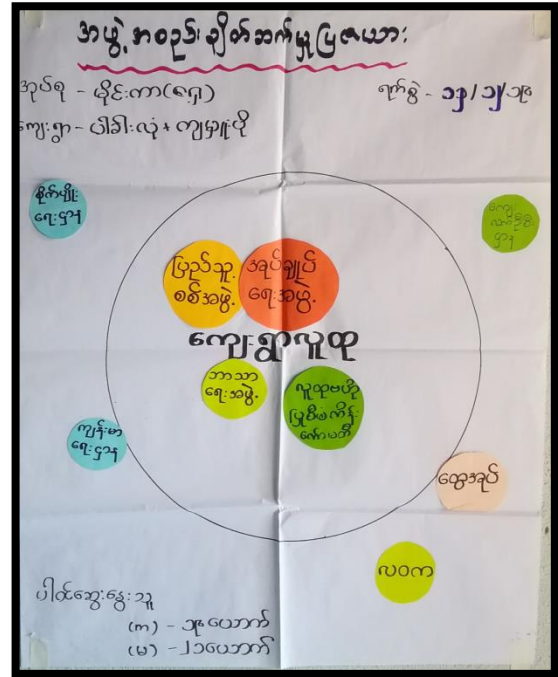 အဖွဲ့အစည်းချိတ်ဆက်မှုပြဇယား
အုပ်စု - မိုင်းကာ(ရှေ့)
ရက်စွဲ - ၁၃/၁၂/၁၉
ကျေးရွာ - ပါခါးလုံ + ကျမှူးပို
စိုက်ပျိုး
ရေးဌာန
ဌာန
ပြည်သူ့
စစ်အဖွဲ့
အုပ်ချုပ်
ရေးအဖွဲ့
ကျေးရွာလူထု
ဘာသာ
ရေးအဖွဲ့
လူထုဗဟို
ပြုစီမံကိန်း
ကော်မတီ
ကျန်းမာ
ရေးဌာန
ထွေအုပ်
လဝက
ပါဝင်ဆွေးနွေးသူ
(ကျ) - ၁၉ယောက်
(မ) - ၂၁ယောက်